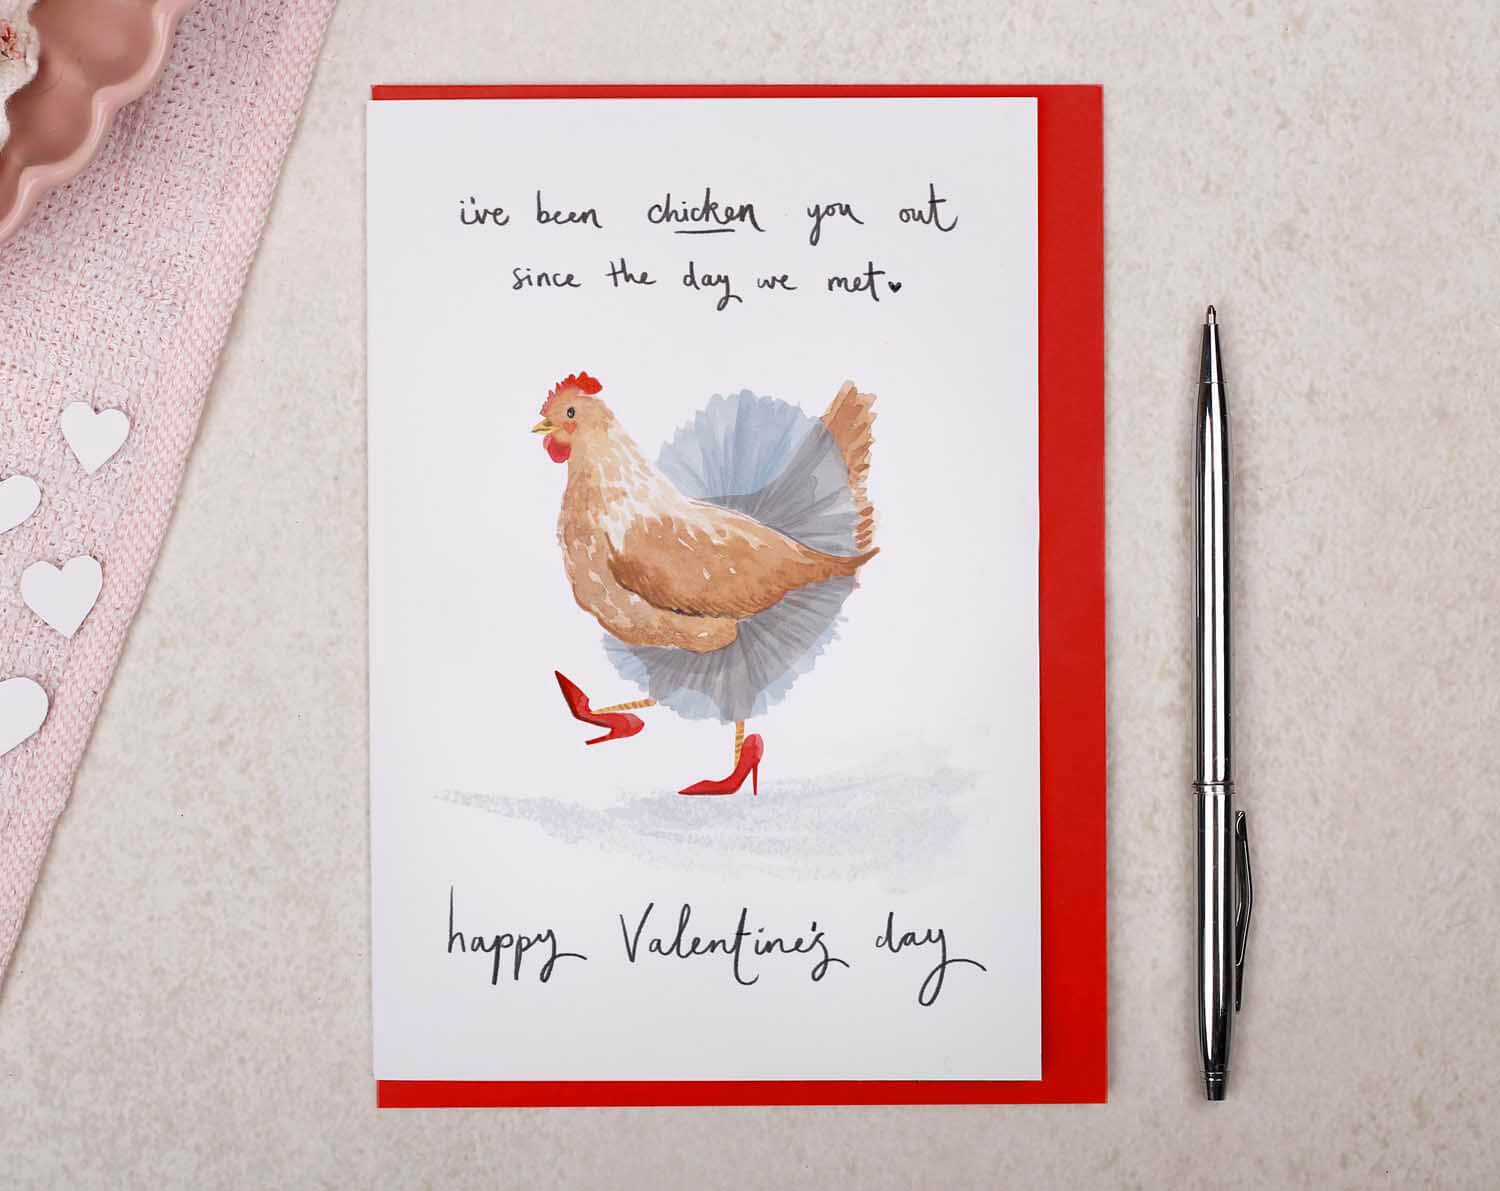 i've been chicken you out
since the day we met♥
happy Valentine's day